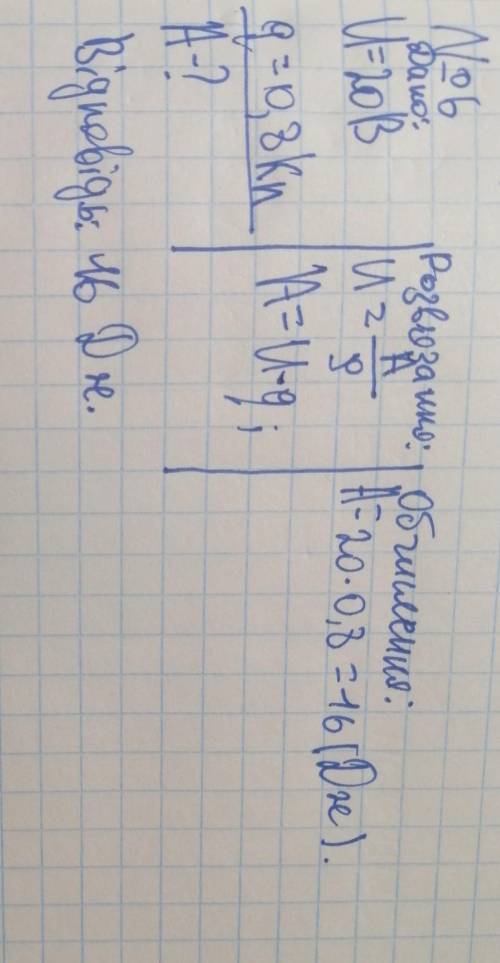 №6
Дано:
U=20В
q=0,8Кл
A-?
Розв'язання:
U=A/q
A=U·q;
Обчислення:
A=20·0,8=16(Дж).
Відповідь: 16 Дж.